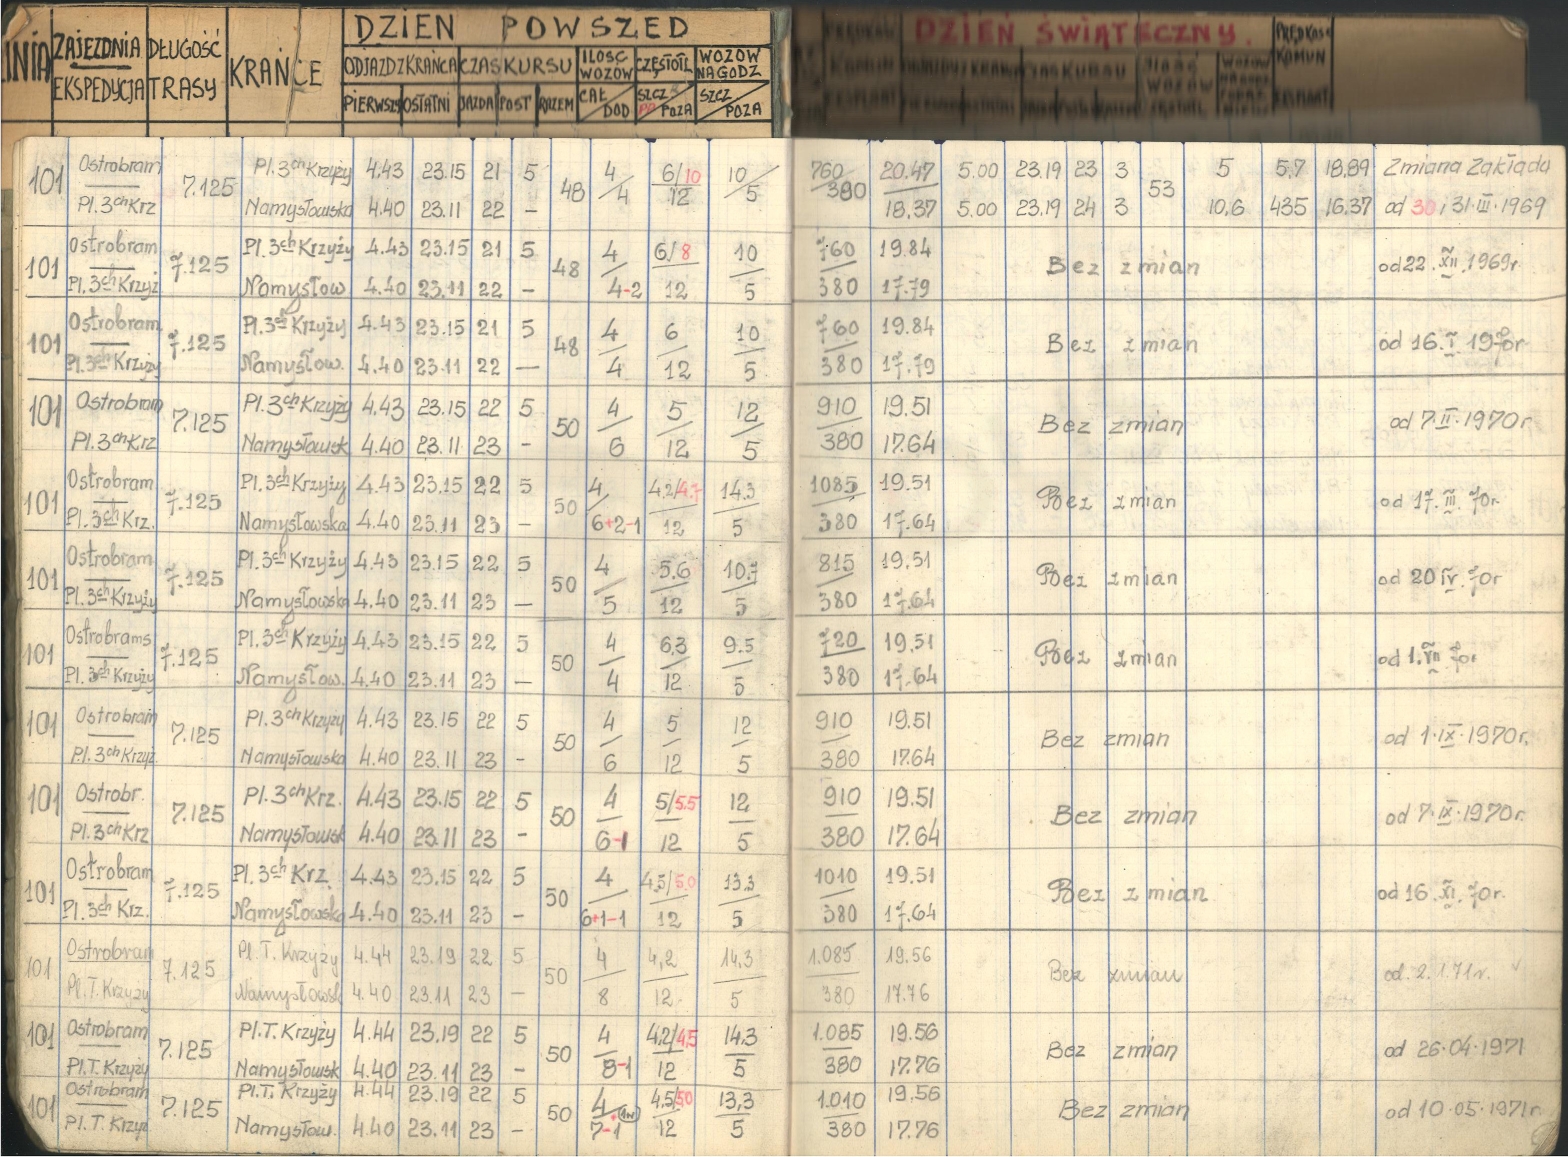 DZIEŃ POWSZED
DZIEŃ ŚWIĄTECZNY.
LINIA ZAJEZDNIA DŁUGOŚĆ KRAŃCE ODJAZD Z KRAŃCA CZAS KURSU ILOŚĆ CZĘSTOTL WOZÓW
EKSPEDYCJA TRASY WOZÓW NA GODZ
PIERWSZ OSTATNI JAZDA POST RAZEM CAŁ DOD SZCZ PO POZA SZCZ POZA
Ostrobram Pl. 3ch Krzyży 4.43 23.15 21 5 4 6/10 10 760 20.47 5.00 23.19 23 3 5 5,7 18,89 Zmiana Zakładu
101 7.125 48 53
Pl. 3ch Krz Namysłowska 4.40 23.11 22 – 4 12 5 380 18,37 5.00 23.19 24 3 10,6 435 16.37 od 30 i 31·III·1969
Ostrobram Pl. 3ch Krzyży 4.43 23.15 21 5 4 6/8 10 760 19.84
101 7.125 48 Bez zmian od 22.XII.1969r
Pl. 3ch Krzyż Namysłow 4.40 23.11 22 – 4-2 12 5 380 17.79
Ostrobram Pl. 3ch Krzyży 4.43 23.15 21 5 4 6 10 760 19.84
101 7.125 48 Bez zmian od 16.I.1970r
Pl. 3ch Krzyży Namysłow. 4.40 23.11 22 — 4 12 5 380 17.79
Ostrobram Pl. 3ch Krzyży 4.43 23.15 22 5 4 5 12 910 19.51
101 7.125 50 Bez zmian od 7·II·1970r
Pl. 3ch Krz Namysłowsk 4.40 23.11 23 – 6 12 5 380 17.64
Ostrobram Pl. 3ch Krzyży 4.43 23.15 22 5 4 4,2/4.7 14.3 1085 19.51
101 7.125 50 Bez zmian od 17.III.70r.
Pl. 3ch Krz. Namysłowska 4.40 23.11 23 – 6+2-1 12 5 380 17.64
Ostrobram Pl. 3ch Krzyży 4.43 23.15 22 5 4 5.6 10.7 815 19.51
101 7.125 50 Bez zmian od 20 IV.70r
Pl. 3ch Krzyży Namysłowska 4.40 23.11 23 — 5 12 5 380 17.64
Ostrobrams Pl. 3ch Krzyży 4.43 23.15 22 5 4 6,3 9.5 720 19.51
101 7.125 50 Bez zmian od 1.VII 70r
Pl. 3ch Krzyży Namysłow. 4.40 23.11 23 — 4 12 5 380 17.64
Ostrobram Pl. 3ch Krzyży 4.43 23.15 22 5 4 5 12 910 19.51
101 7.125 50 Bez zmian od 1·IX·1970r.
Pl. 3ch Krzyż. Namysłowska 4.40 23.11 23 – 6 12 5 380 17.64
Ostrobr. Pl. 3ch Krz. 4.43 23.15 22 5 4 5/5.5 12 910 19.51
101 7.125 50 Bez zmian od 7·IX·1970r.
Pl. 3ch Krz Namysłowsk 4.40 23.11 23 – 6-1 12 5 380 17.64
Ostrobram Pl. 3ch Krz. 4.43 23.15 22 5 4 4,5/5.0 13.3 1010 19.51
101 7.125 50 Bez zmian od 16.XI.70r.
Pl. 3ch Krz. Namysłowska 4.40 23.11 23 – 6+1-1 12 5 380 17.64
Ostrobram Pl. T. Krzyży 4.44 23.19 22 5 4 4,2 14,3 1.085 19.56
101 7.125 50 Bez zmian od.2.1.71r.
Pl. T. Krzyży Namysłowsk 4.40 23.11 23 – 8 12 5 380 17.76
Ostrobram Pl. T. Krzyży 4.44 23.19 22 5 4 4,2/4,5 14.3 1.085 19.56
101 7.125 50 Bez zmian od 26·04·1971
Pl. T. Krzyży Namysłowsk 4.40 23.11 23 – 8-1 12 5 380 17.76
Ostrobram Pl. T. Krzyży 4.44 23.19 22 5 4 4,5/50 13,3 1.010 19.56
101 7.125 50 Bez zmian od 10·05·1971r
Pl. T. Krzyż Namysłow. 4.40 23.11 23 – 7-1 12 5 380 17.76